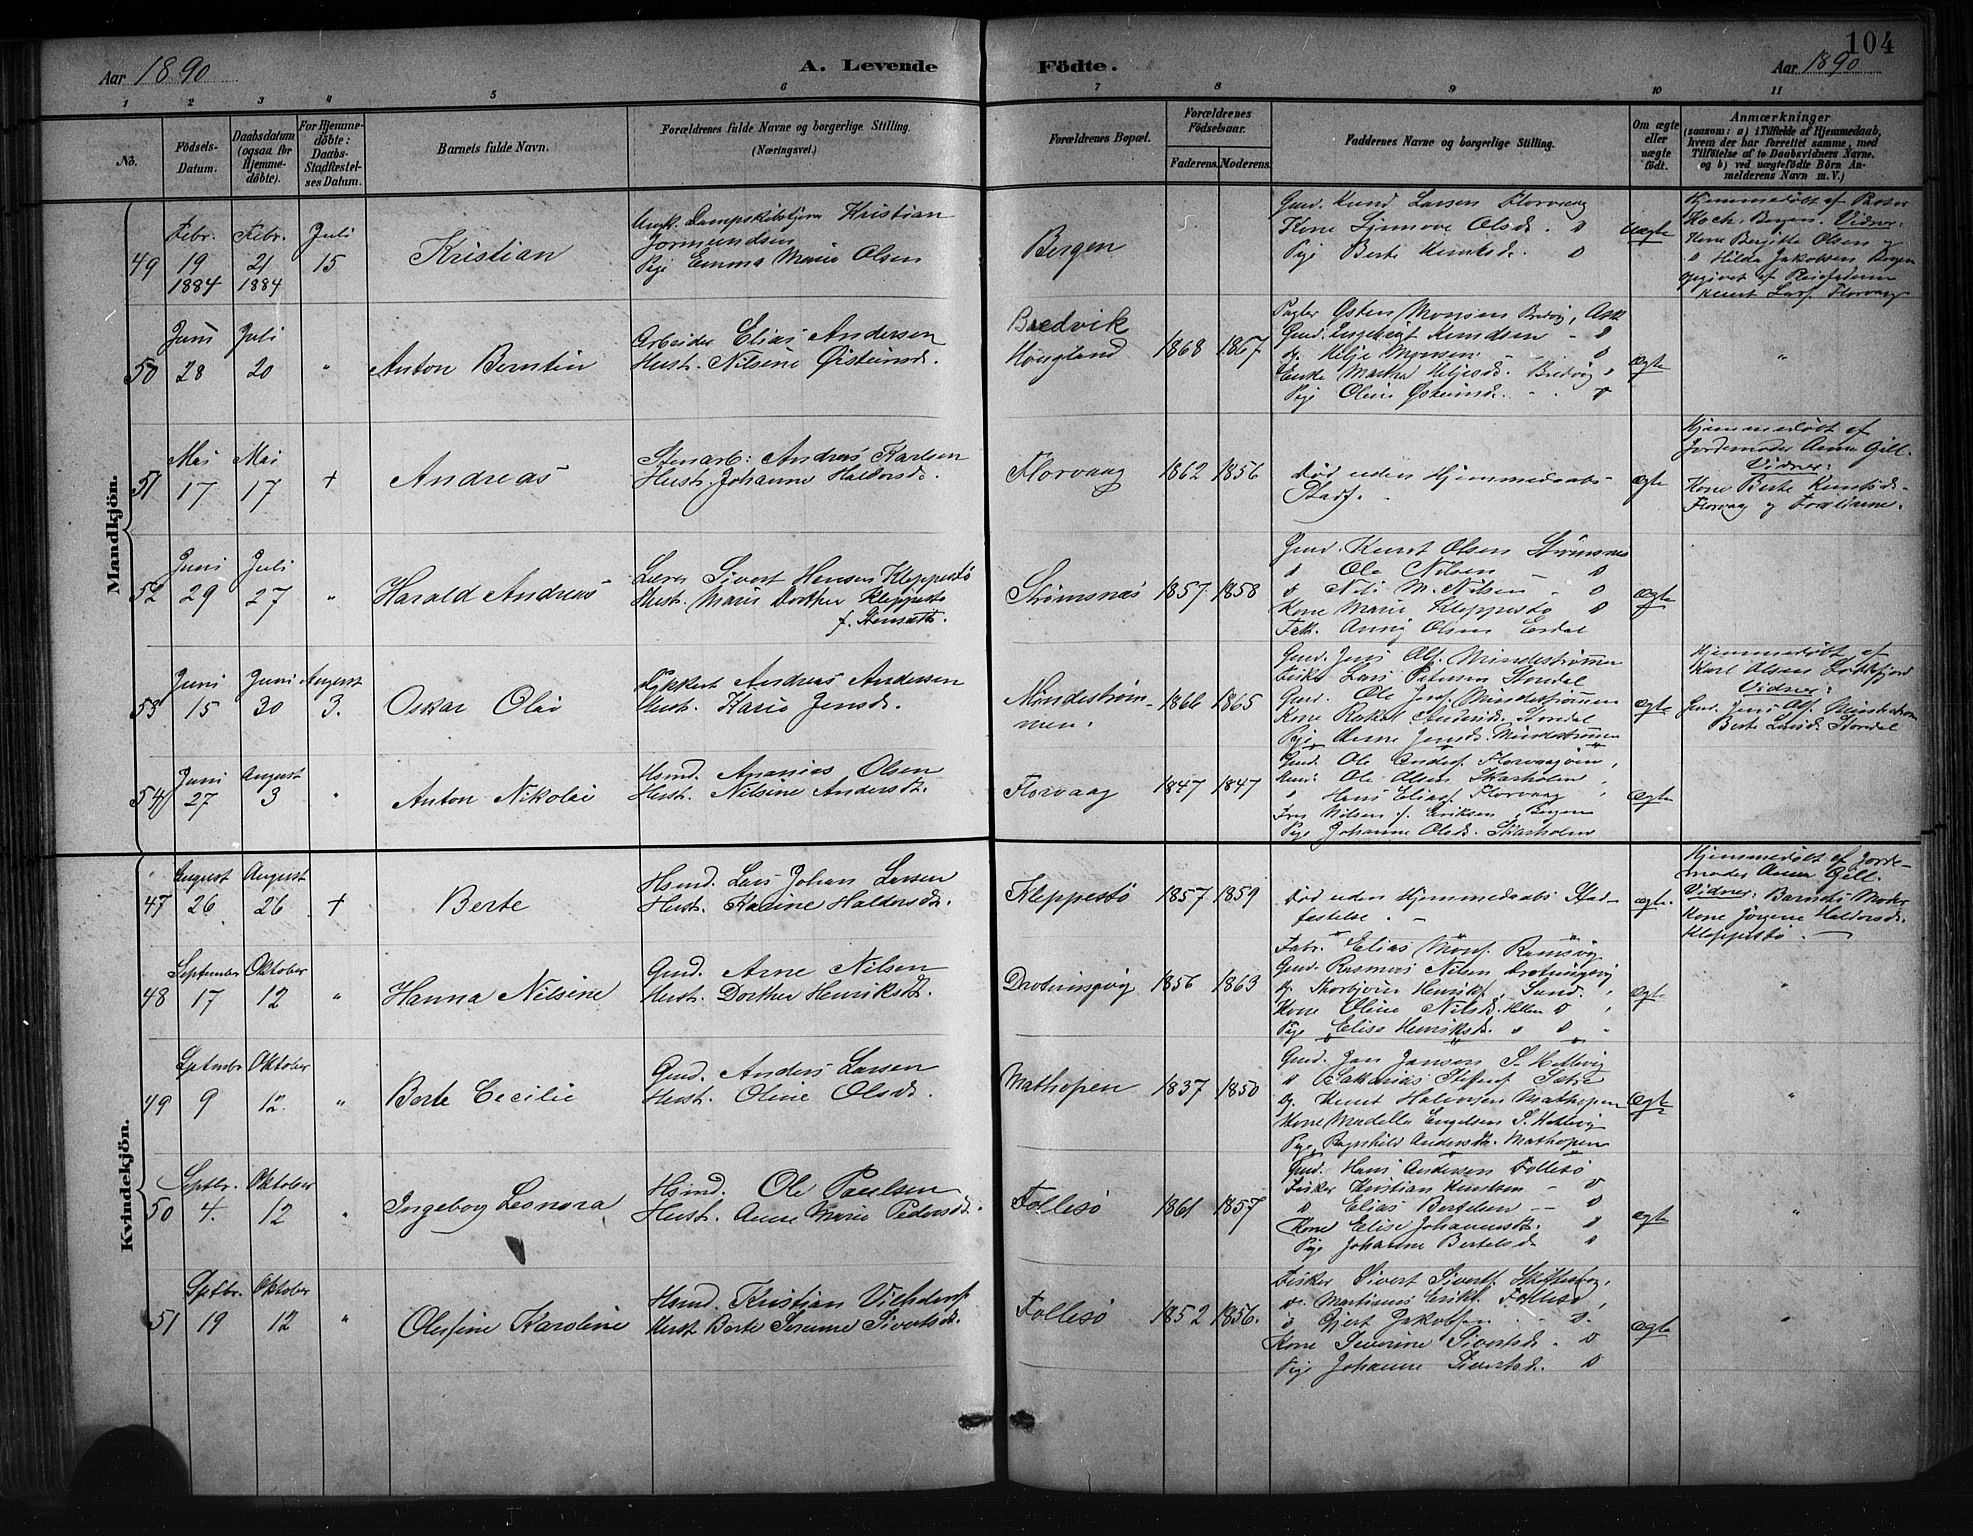 104
Aar 1890
A. Levende
Födte.
Aar 1890
1 2 3 4 5 6 7 8 9 10 11
No.
Födsels-Datum.
Daabsdatum (ogsaa for Hjemme-döbte).
For Hjemme-döbte: Daabs-Stadfæstel-ses Datum.
Barnets fulde Navn.
Forældrenes fulde Navne og borgerlige Stilling. (Næringsvei.)
Forældrenes Bopæl.
Forældrenes Födselsaar.
Faderens. Moderens.
Faddernes Navne og borgerlige Stilling.
Om ægte eller uægte födt.
Anmærkninger
(saasom: a) i Tilfælde af Hjemmedaab, hvem der har forrettet samme, med Tilföielse af to Daabsvidners Navne, og b) ved uægtefödte Börn An-melderens Navn m. V.)
Mandkjön.
49
Febr. 19 1884
Febr. 21 1884
Juli 15
Kristian
Ungk. Kristian
Jormundsen
Pige Emma Marie Olsen
Bergen
Gmd. Knud Larsen Florvaag
Kone Synnove Olsd. "
Pige Berte Knutsd. "
Uægte
Hjemmedøbt af Pastor
Koch. Bergen. Vidner:
Kone Bergitte Olsen og
" Hilda Jakobsen Bergen
opgivet af Pleiefaderen
Knut Lars. Florvaag
50
Juni 28
Juli 20
"
Anton Berntin
Arbeider Elias Andersen
Hust. Nilsine Østeinsd.
Bredvik
Hougland
1868 1867
Østen Monsen Bredvig, Ask
Gmd. Engebrigt Knudsen - "
og Helje Monsen - "
Enke Martha Heljesd. Bredvig "
Pige Oline Østeinsd. - "
Ægte
"
51
Mai 17
Mai 17
+
Andreas
Stenarb: Andreas Karlsen
Hust. Johanne Haldorsd.
Florvaag
1862 1856
Død uden Hjemmedaabs-
Stadf. -
Ægte
Hjemmedøbt af
Jordemoder Anna Gill.
Vidner:
Kone Berte Knutsd.
Florvaag og Forældrene.
52
Juni 29
Juli 27
"
Harald Andreas
Lærer Sivert Hansen Kleppestø
Hust. Marie Dorthea Kleppestø
f. Stensæth.
Strømsnæs
1857 1858
Gmd. Knut Olsen Strømsnes
" Ole Nilsen "
" Nils M. Nilsen - "
Kone Marie Kleppestø "
Frk. Anna Olsen Erdal
Ægte
53
Juni 15
Juni 30
August 3.
Oskar Olai
Andreas Andersen
Hust. Karie Jensd.
Mindestrøm-
men.
1866 1865
Gmd. Jens Ols. Mindestrømmen
Fisker Lars Petersen Stordal
Gmd. Ole Jens. Mindestrømmen
Kone Rakel Andersd. Stordal
Pige Anne Jensd. Mindestrømmen
Ægte
Hjemmedøbt af
Karl Olsen
Vidner:
Gmd. Jens Ols. Mindestrøm
Berte Larsd. Stordal
54
Juni 27
August 3
"
Anton Nikolai
Hsmd. Ananias Olsen
Hust. Nilsine Andersdt.
Florvaag
1847 1847
Gmd. Ole Anders. Florvaagøen,
Ole Olsen Skarholm
" Hans Elias. Florvaag
Fru Nilsen f. Eriksen, Bergen
Pige Johanne Olsd. Skarholm
Ægte
Kvindekjön.
47
August 26
August 26
+
Berte
Hsmd. Lars Johan Larsen
Hust. Karine Haldorsdt.
Kleppestø
1857 1859
Død uden Hjemmedaabs Stad-
festelse. -
ægte.
Hjemmedøbt af Jorde-
moder Anna Gill.
Vidner: Barnets Moder
Kone Jørgine Haldorsd.
Kleppestø. -
48
September 17
Oktober 12
"
Hanna Nilsine
Gmd. Arne Nilsen
Hust. Dorthea Henriksdt.
Drotningvig
1856 1863
Fabr. Elias Mons. Ramsvig
Gmd. Rasmus Nilsen Drotningvig
og Thorbjørn Henriks. Sund.
Kone Oline Nilsd. "
Pige Elise Henriksd. " "
Ægte
"
49
Septembr 9
Oktober 12.
"
Berte Cecilie
Gmd. Anders Larsen
Hust. Oline Olsd.
Mathopen
1837 1850
Gmd. Jan Jansen S. Hetlevig
" Sakarias Stefens. Sætre
og Knut Halvorsen Mathopen
Kone Madella Engelsen S. Hetlevig
Pige Ragnhild Andersdt. Mathopen
Ægte
"
50
Septbr. 4.
Oktober 12
"
Ingeborg Leonora
Hsmd. Ole Paulsen
Hust. Anne Marie Pedersdt.
Follesø
1861 1857
Gmd. Hans Andersen Follesø
Fisker Kristian Knutsen - "
" Elias Bertelsen - "
Kone Elise Johannesdt. "
Pige Johanne Bertelsd. "
Ægte
"
51
Septbr. 19
Oktober 12
"
Olefine Karoline
Hsmd. Kristian Vilhelms.
Hust Berte Serine Sivertsdt.
Follesø
1852 1856.
Fisker Sivert Siverts.
" Martinus Eriks. Follesø,
" Gjert Jakobsen - "
Kone Severine Sivertsd. "
Pige Johanne Sivertsd. "
Ægte
"